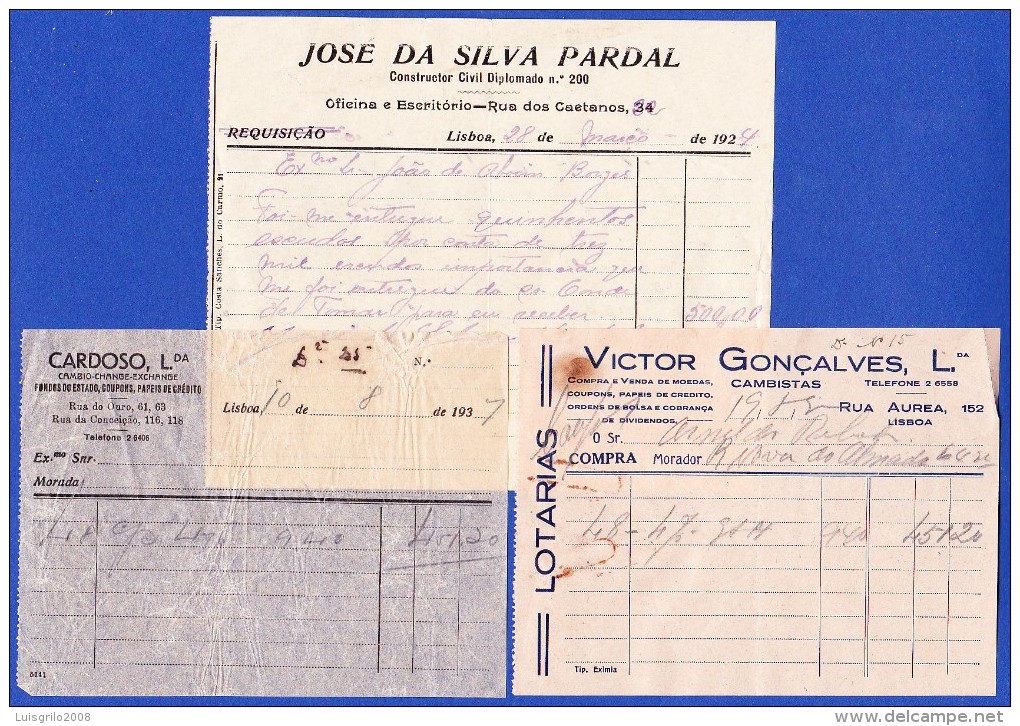 JOSÉ DA SILVA PARDAL
Constructor Civil Diplomado n.º 200
Oficina e Escritório—Rua dos Caetanos, 34
REQUISIÇÃO Lisboa, 28 de Março de 1924
Exmo Sr. João de Borges
Foi me entregue quinhentos
escudos por conta de trez
mil escudos importancia que
me foi entregue do Conde
de Tomar para eu receber
500,00
Tip. Costa Sanches, L. do Carmo, 91
CARDOSO, L.DA
CAMBIO-CHANGE-EXCHANGE
FUNDOS DO ESTADO, COUPONS, PAPEIS DE CRÉDITO
Rua do Ouro, 61, 63
Rua da Conceição, 116, 118
Telefone 2 6406
N.º
Lisboa, 10 de 8 de 1937
Ex.mo Snr.
Morada:
940 45120
6441
D. Nº 15
VICTOR GONÇALVES, L.DA
COMPRA E VENDA DE MOEDAS,
COUPONS, PAPEIS DE CREDITO,
ORDENS DE BOLSA E COBRANÇA
DE DIVIDENDOS,
CAMBISTAS TELEFONE 2 6558
RUA AUREA, 152
LISBOA
O Sr.
COMPRA Morador R. Nova do Almada
LOTARIAS
48 - 940 45120
Tip. Eximia
Luisgrilo2008
delcampe.net